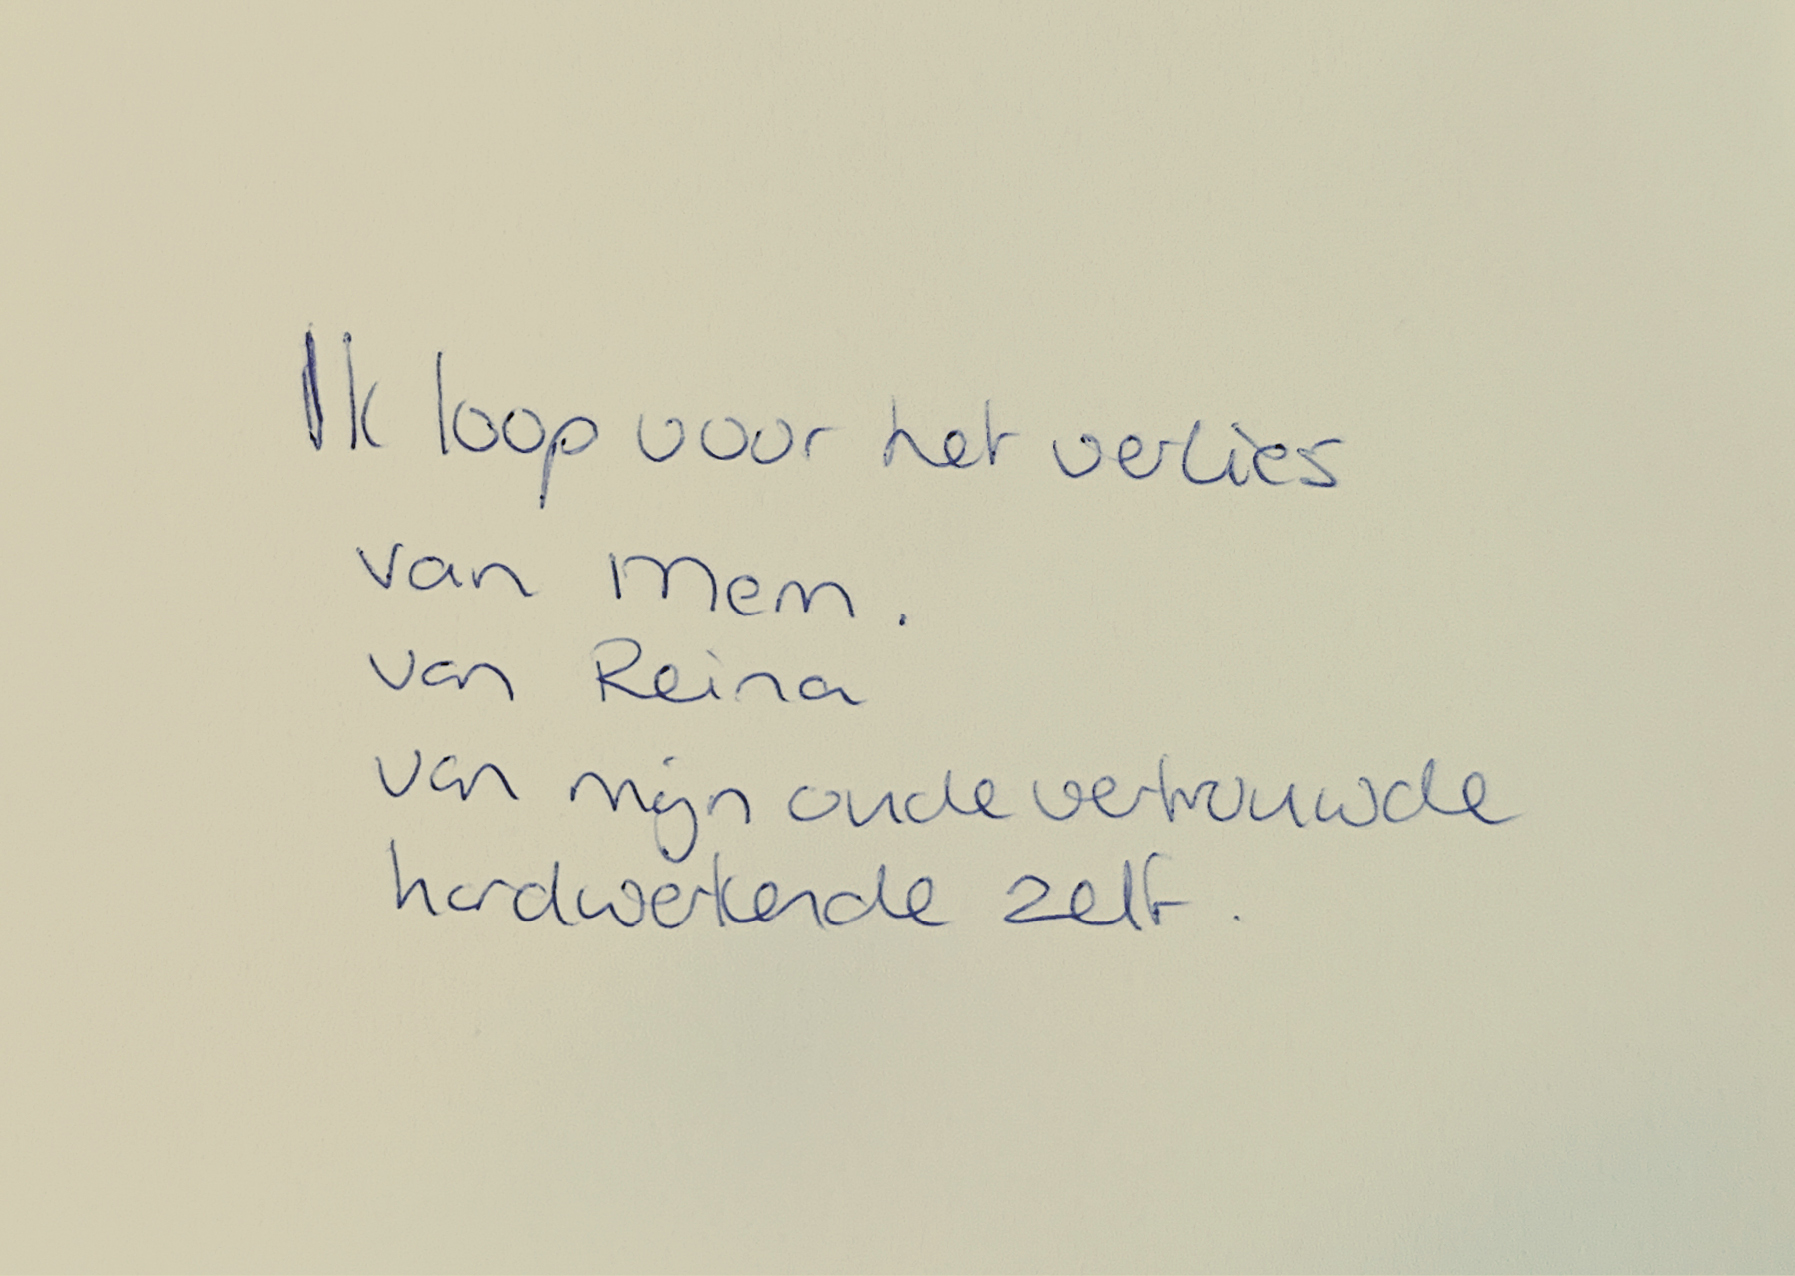 Ik loop voor het verlies
van Mem.
van Reina
van mijn oude vertrouwde
hardwerkende zelf.